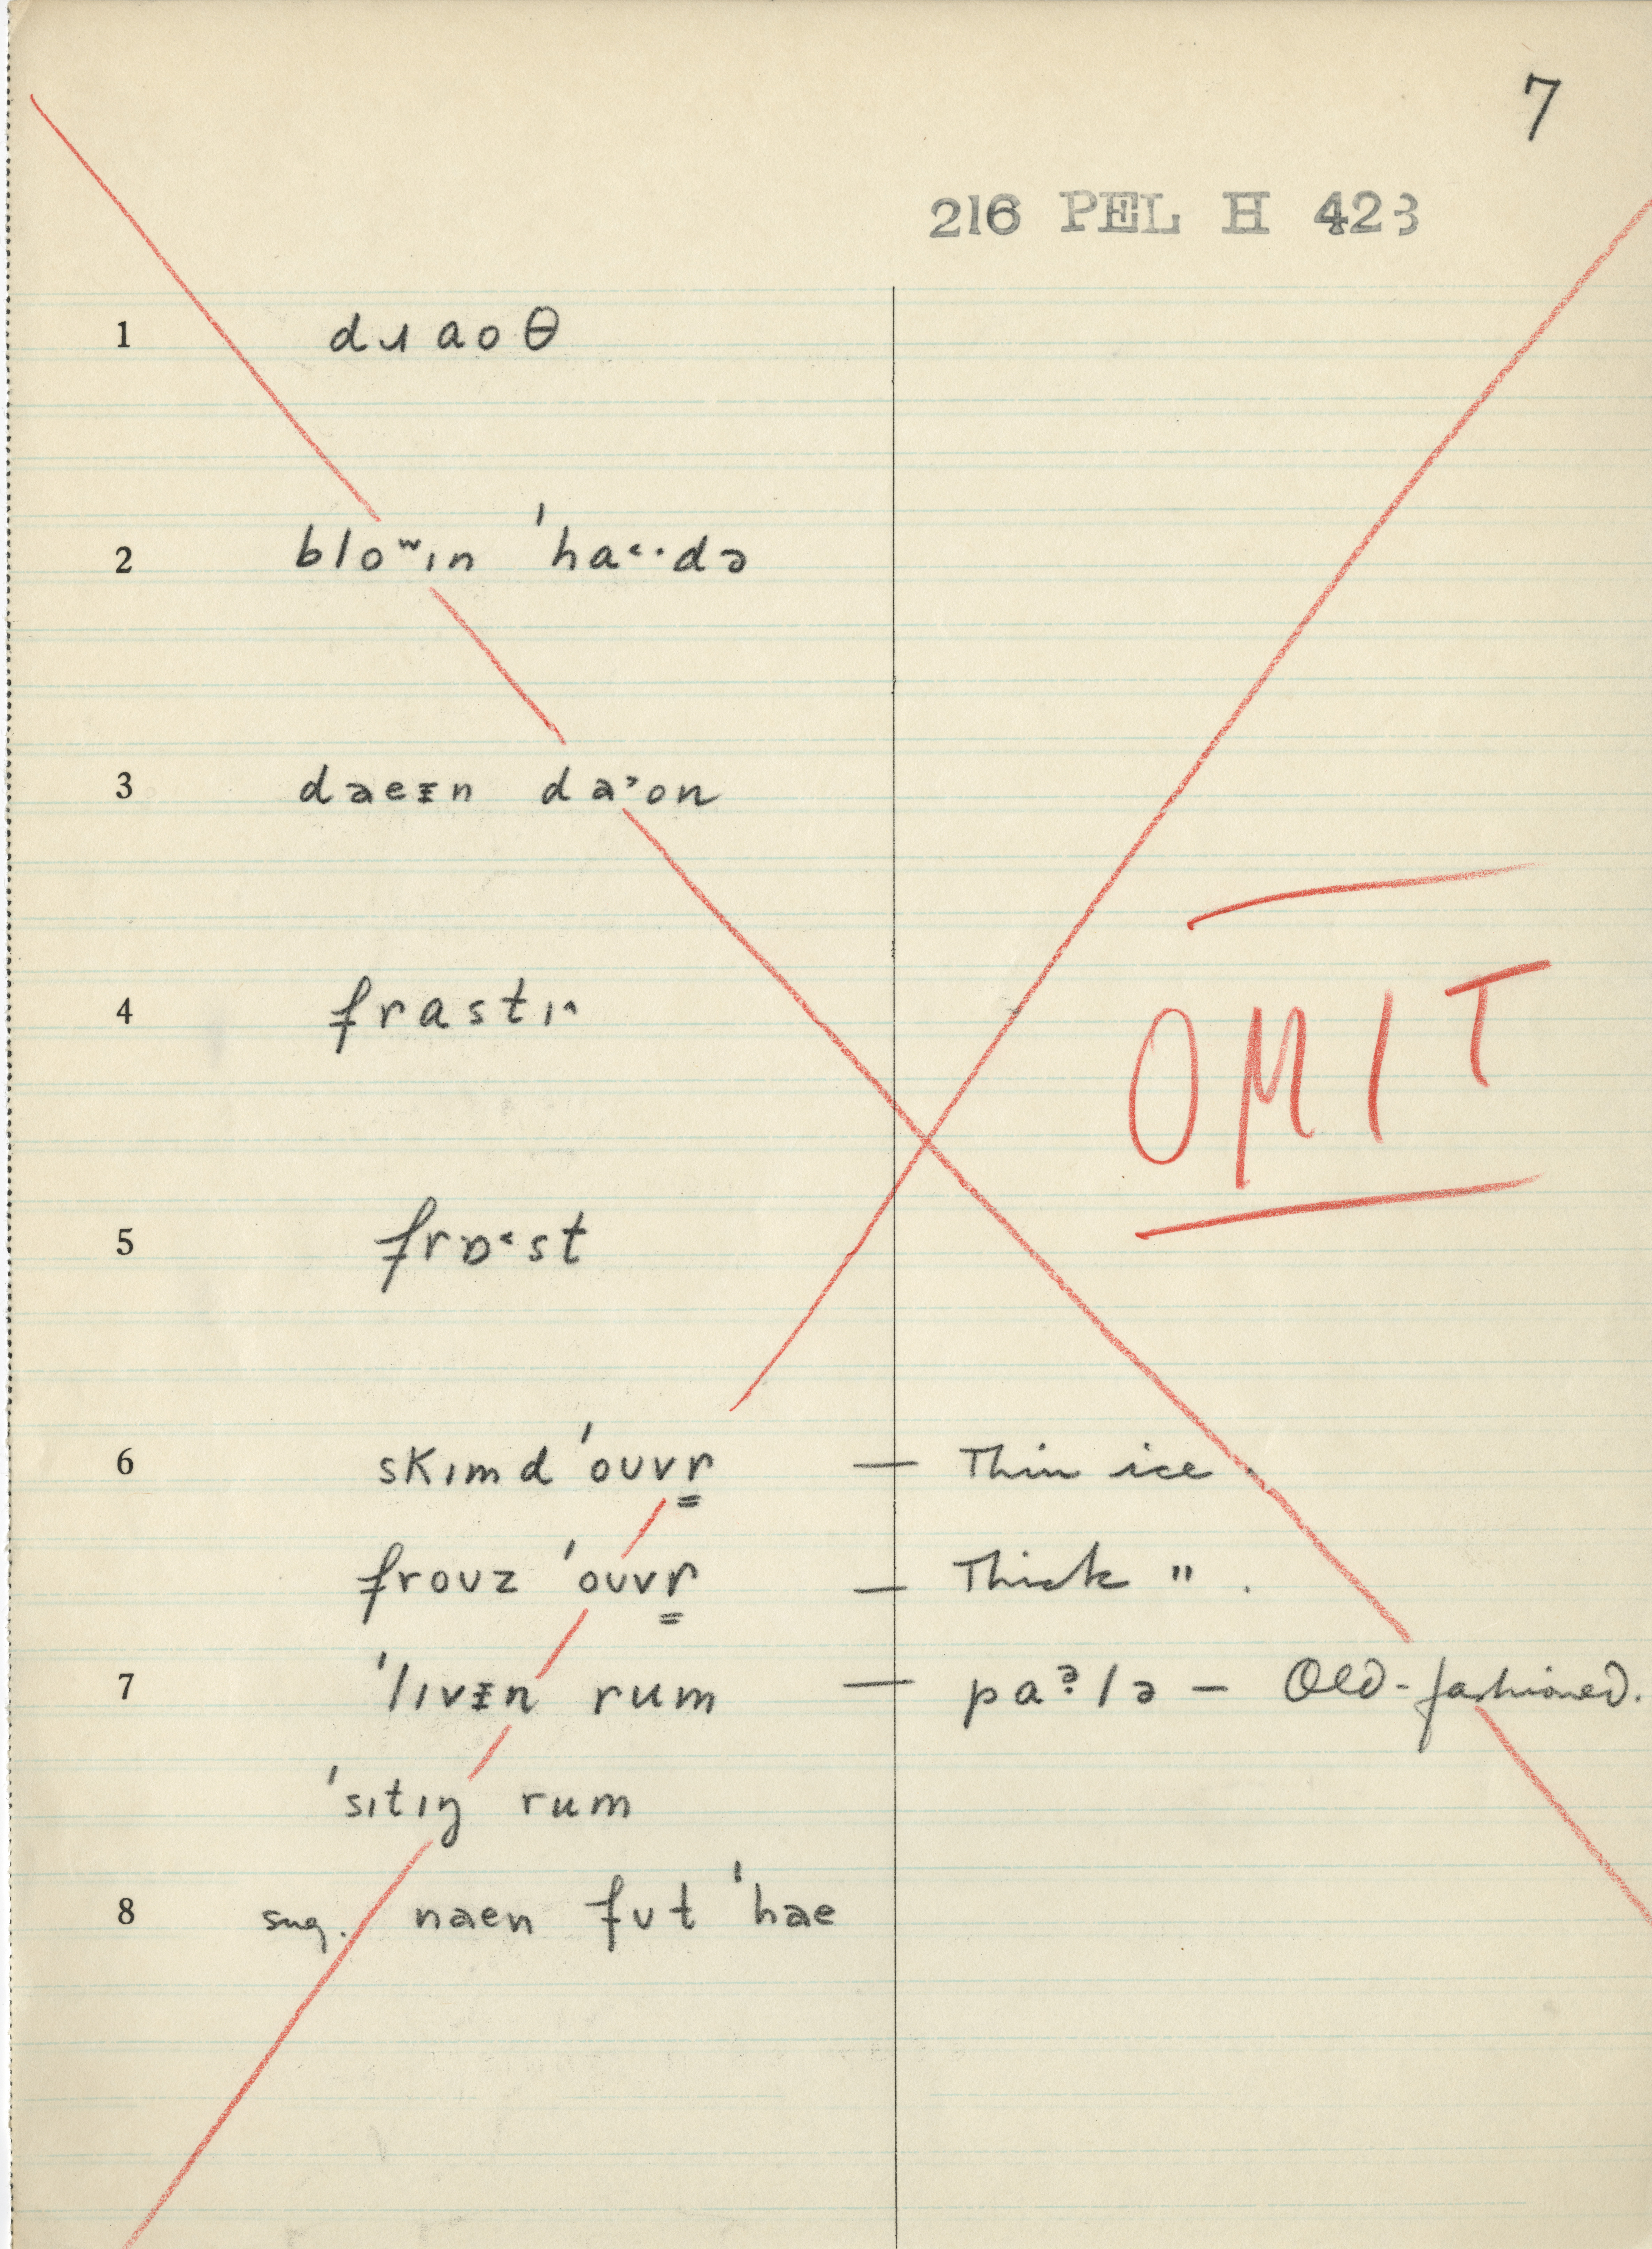 7
216 PEL H 423
1 dɹaoθ
2 bloʷɪn ˈha˂·də
3 dəeᵻn daˀon
4 frastɪ^
5 frɒ˂st
OMIT
6 skɪmd ˈoʊvr̳ — Thin ice.
froʊz ˈoʊvr̳ — Thick " .
7 ˈlɪvᵻn rum — paˀ·lə — Old-fashioned.
ˈsɪtɪŋ rum
8 sug. naen fʊt ˈhae